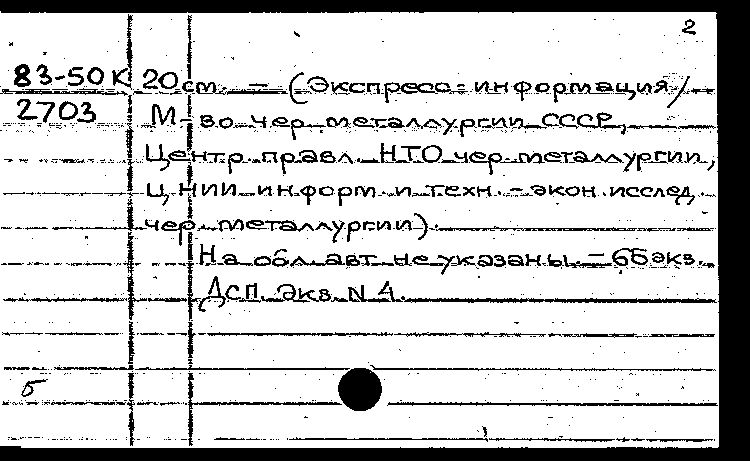 2
83-50К 20 см. — (Экспресс-информация/
2703 М-во чер. металлургии СССР,
Центр. правл. НТО чер. металлургии,
ЦНИИ информ. и техн.-экон. исслед.
чер. металлургии).
На обл. авт. не указаны. — 65 экз.
ДСП. Экз. N 4.
5